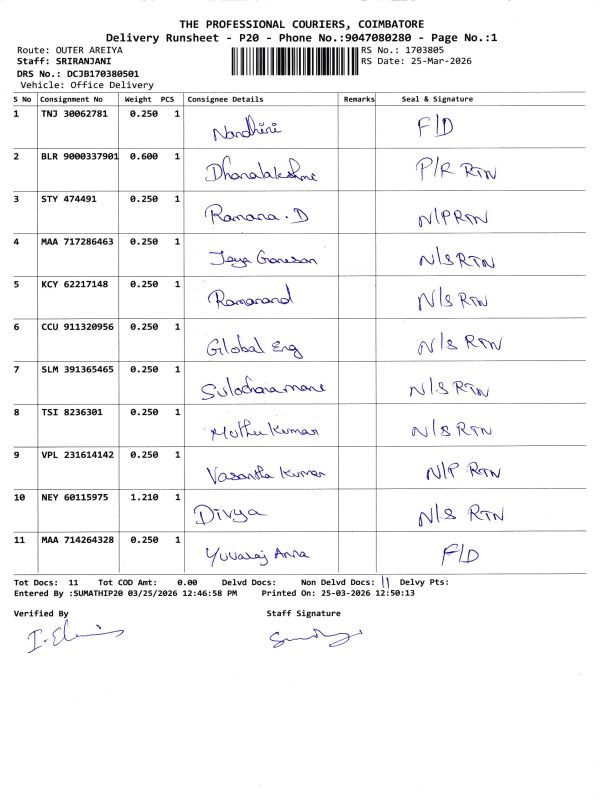 THE PROFESSIONAL COURIERS, COIMBATORE
Delivery Runsheet - P20 - Phone No.:9047080280 - Page No.:1
Route: OUTER AREIYA RS No.: 1703805
Staff: SRIRANJANI RS Date: 25-Mar-2026
DRS No.: DCJB170380501
Vehicle: Office Delivery
S No Consignment No Weight PCS Consignee Details Remarks Seal & Signature
1 TNJ 30062781 0.250 1 Nandhini F/D
2 BLR 9000337901 0.600 1 Dhanalakshmi P/R RTN
3 STY 474491 0.250 1 Ramana.D N/P RTN
4 MAA 717286463 0.250 1 Jeya Ganesan N/S RTN
5 KCY 62217148 0.250 1 Ramanand N/S RTN
6 CCU 911320956 0.250 1 Global Eng N/S RTN
7 SLM 391365465 0.250 1 Sulochanamani N/S RTN
8 TSI 8236301 0.250 1 Muthu Kumar N/S RTN
9 VPL 231614142 0.250 1 Vasantha Kumar N/P RTN
10 NEY 60115975 1.210 1 Divya N/S RTN
11 MAA 714264328 0.250 1 Yuvaraj Anna F/D
Tot Docs: 11 Tot COD Amt: 0.00 Delvd Docs: Non Delvd Docs: 11 Delvy Pts:
Entered By :SUMATHIP20 03/25/2026 12:46:58 PM Printed On: 25-03-2026 12:50:13
Verified By Staff Signature